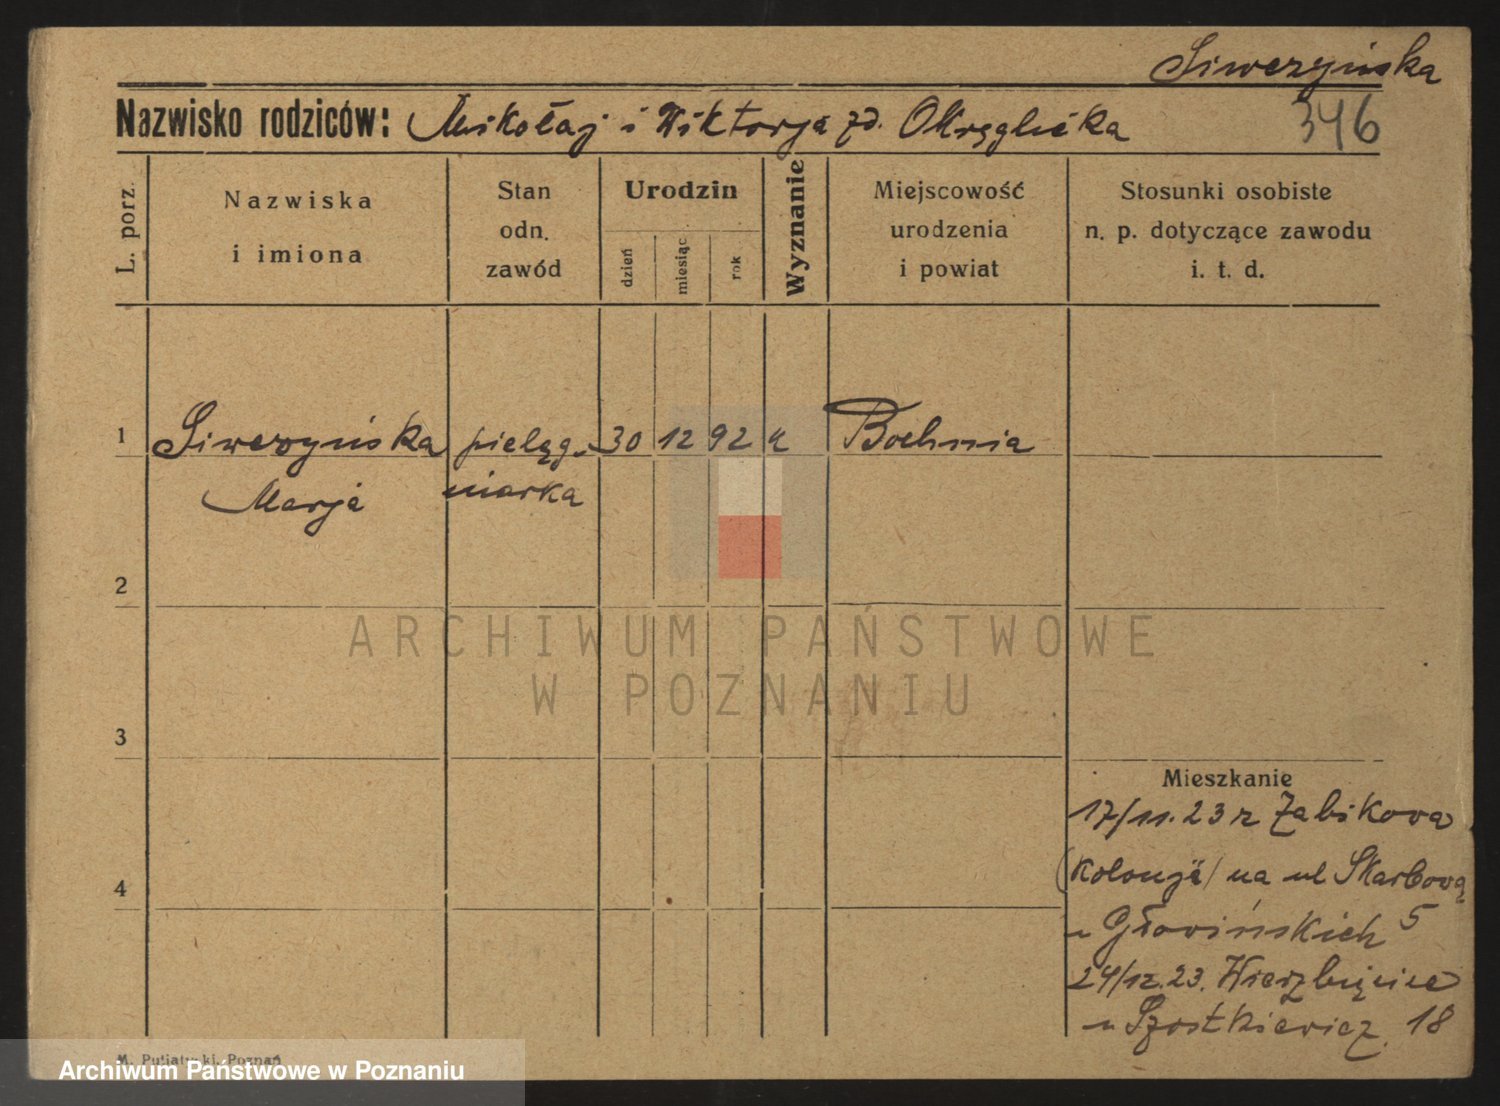 Siwczyńska
Nazwisko rodziców: Mikołaj i Wiktorja zd. Okręglicka
346
L. porz.
Nazwiska
i imiona
Stan
odn.
zawód
Urodzin
dzień
miesiąc
rok
Wyznanie
Miejscowość
urodzenia
i powiat
Stosunki osobiste
n. p. dotyczące zawodu
i. t. d.
1 Siwczyńska pielęg- 30 12 92 k Bochnia
Marja niarka
2
ARCHIWUM PAŃSTWOWE
W POZNANIU
3
Mieszkanie
17/11.23 z Żabikowa
4
(Kolonja) na ul Skarbową
u Głowińskich 5
24/12.23. Wierzbięcice
u Szostkiewicz 18
M. Putiatycki, Poznań
Archiwum Państwowe w Poznaniu